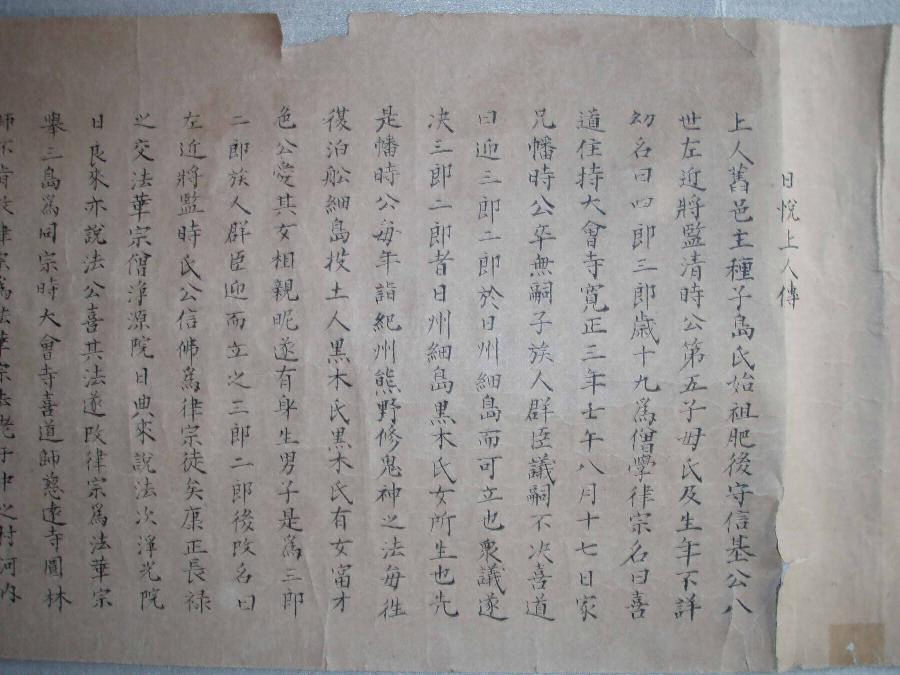 日悦上人傳
上人舊邑主種子島氏始祖肥後守信基公八
世左近將監清時公第五子母氏及生年不詳
幼名曰四郎三郎歳十九爲僧學律宗名曰喜
道住持大會寺寛正三年壬午八月十七日家
兄幡時公卒無嗣子族人群臣議嗣不决喜道
曰迎三郎二郎於日州細島而可立也衆議遂
决三郎二郎者日州細島黒木氏女所生也先
是幡時公毎年詣紀州熊野修鬼神之法毎徃
復泊舩細島投土人黒木氏黒木氏有女富才
色公愛其女相親昵遂有身生男子是爲三郎
二郎族人群臣迎而立之三郎二郎後改名曰
左近將監時氏公信佛爲律宗徒矣康正長禄
之交法華宗僧淨源院日典來説法次淨光院
日良來亦説法公喜其法遂改律宗爲法華宗
擧三島爲同宗時大會寺喜道師慈遠寺圓林
師不肯改律宗爲法華宗去老于中之村河内